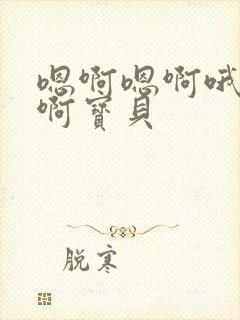 嗯啊嗯啊哦
啊寶貝
脱寒